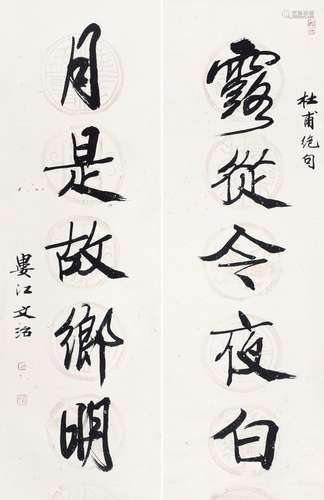 杜甫绝句
露從今夜白
月是故鄉明
婁江文治